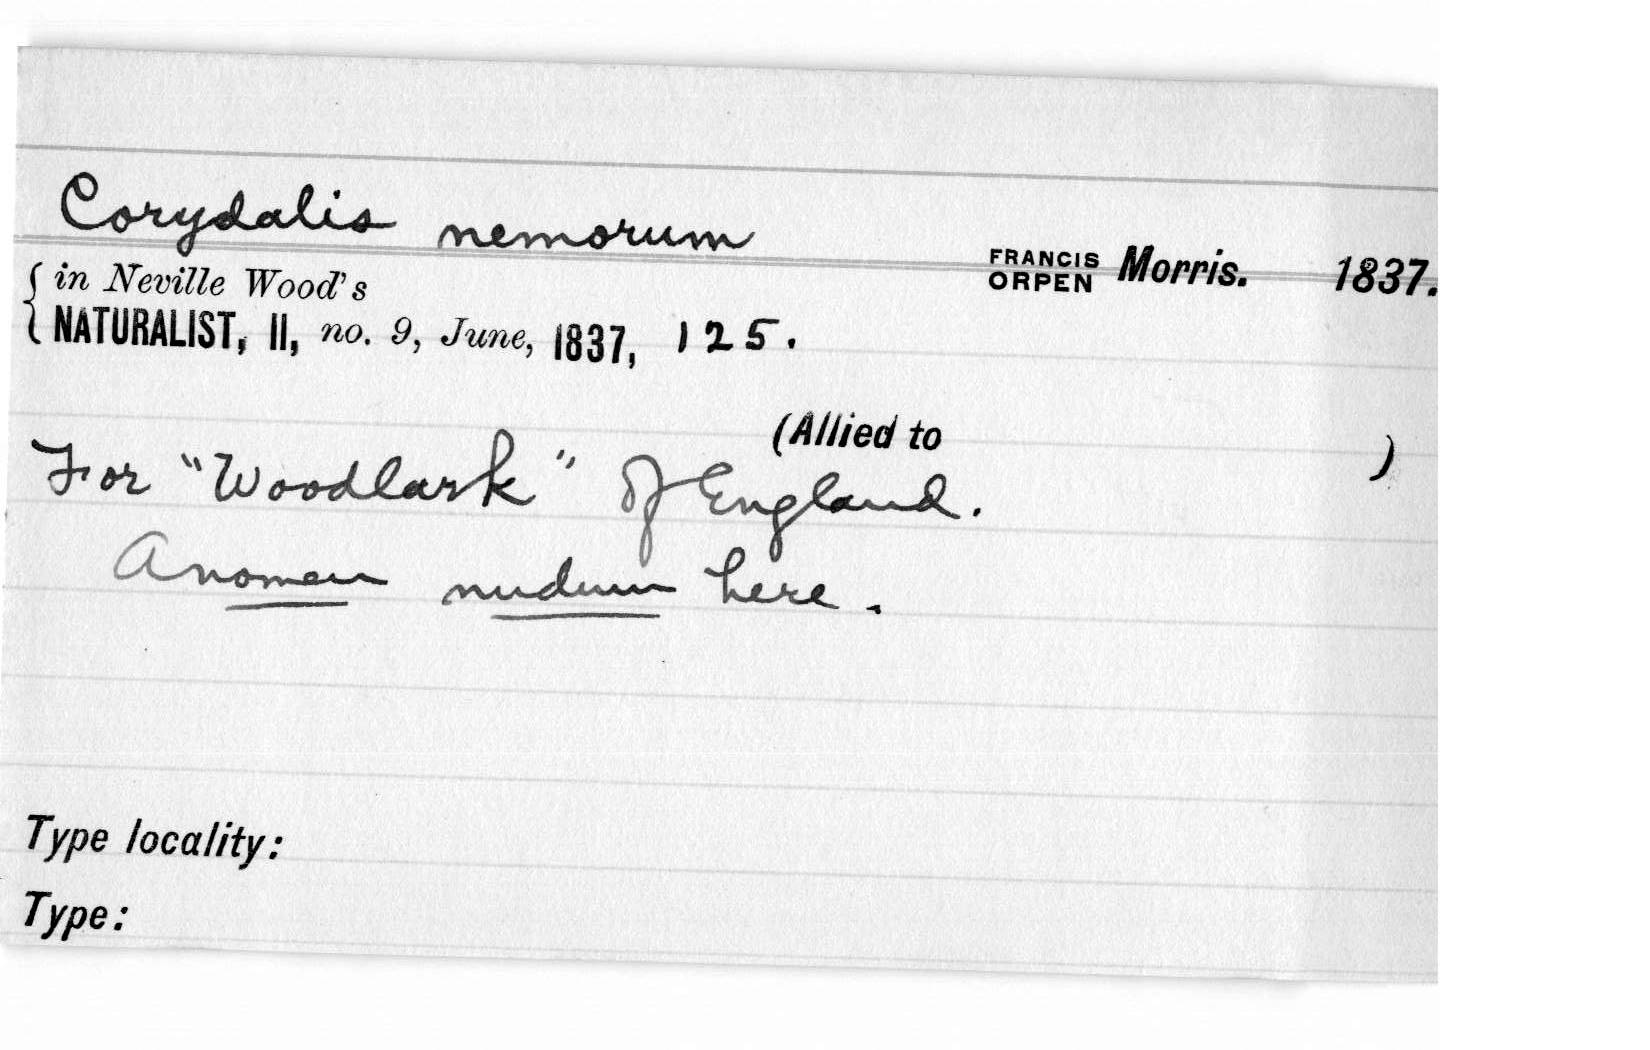 Corydalis nemorum FRANCIS ORPEN Morris. 1837.
{ in Neville Wood's
NATURALIST, II, no. 9, June, 1837, 125.
(Allied to )
For "Woodlark" of England.
A nomen nudum here.
Type locality:
Type: